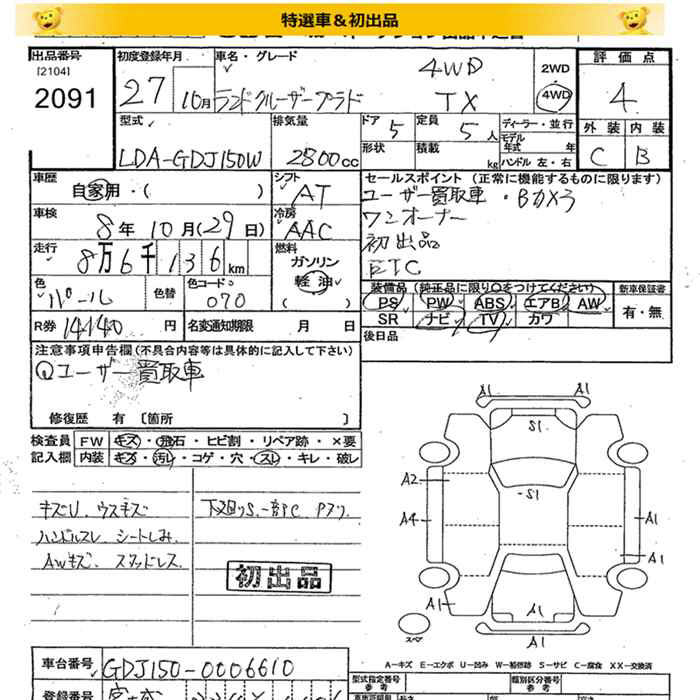 特選車&初出品
出品番号 初度登録年月 車名・グレード 評価点
[2104] 2WD
2091 27 10月 ランドクルーザープラド 4WD TX 4WD 4
型式 排気量 ドア 5 定員 5人 ディーラー・並行 外装 内装
LDA-GDJ150W 2800cc 形状 積載 kg モデル年式 年 C B
ハンドル 左・右
車歴 シフト セールスポイント(正常に機能するものに限ります)
自家用・( ) AT ユーザー買取車・Bカメラ
車検 冷房 ワンオーナー
8年10月(29日) AAC 初出品
走行 燃料 ETC
8万6千136km ガソリン
軽油
( )
色 色替 カラーコード 装備品(純正品に限り○をつけてください) 新車保証書
パール 070 PS PW ABS エアB AW 有・無
SR ナビ TV カワ
R券 14140円 名変通知期限 月 日 後日品
注意事項申告欄(不具合内容等は具体的に記入して下さい)
Qユーザー買取車
修復歴 有 〔箇所 〕
検査員 FW キズ・飛石・ヒビ割・リペア跡・×要
記入欄 内装 キズ・汚レ・コゲ・穴・スレ・キレ・破レ
キズU、ウスキズ 下廻りS、一部P.C
ハンドルスレ シートしみ
AWキズ、スタッドレス
初出品
A1 A1
S1
A2 S1
A4 A1
A1
A1 A1
A1
スペア
A-キズ E-エクボ U-凹み W-板修跡 S-サビ C-腐食 XX-交換済
車台番号 GDJ150-0006610
型式指定番号 参考 類別区分番号 参考
登録番号